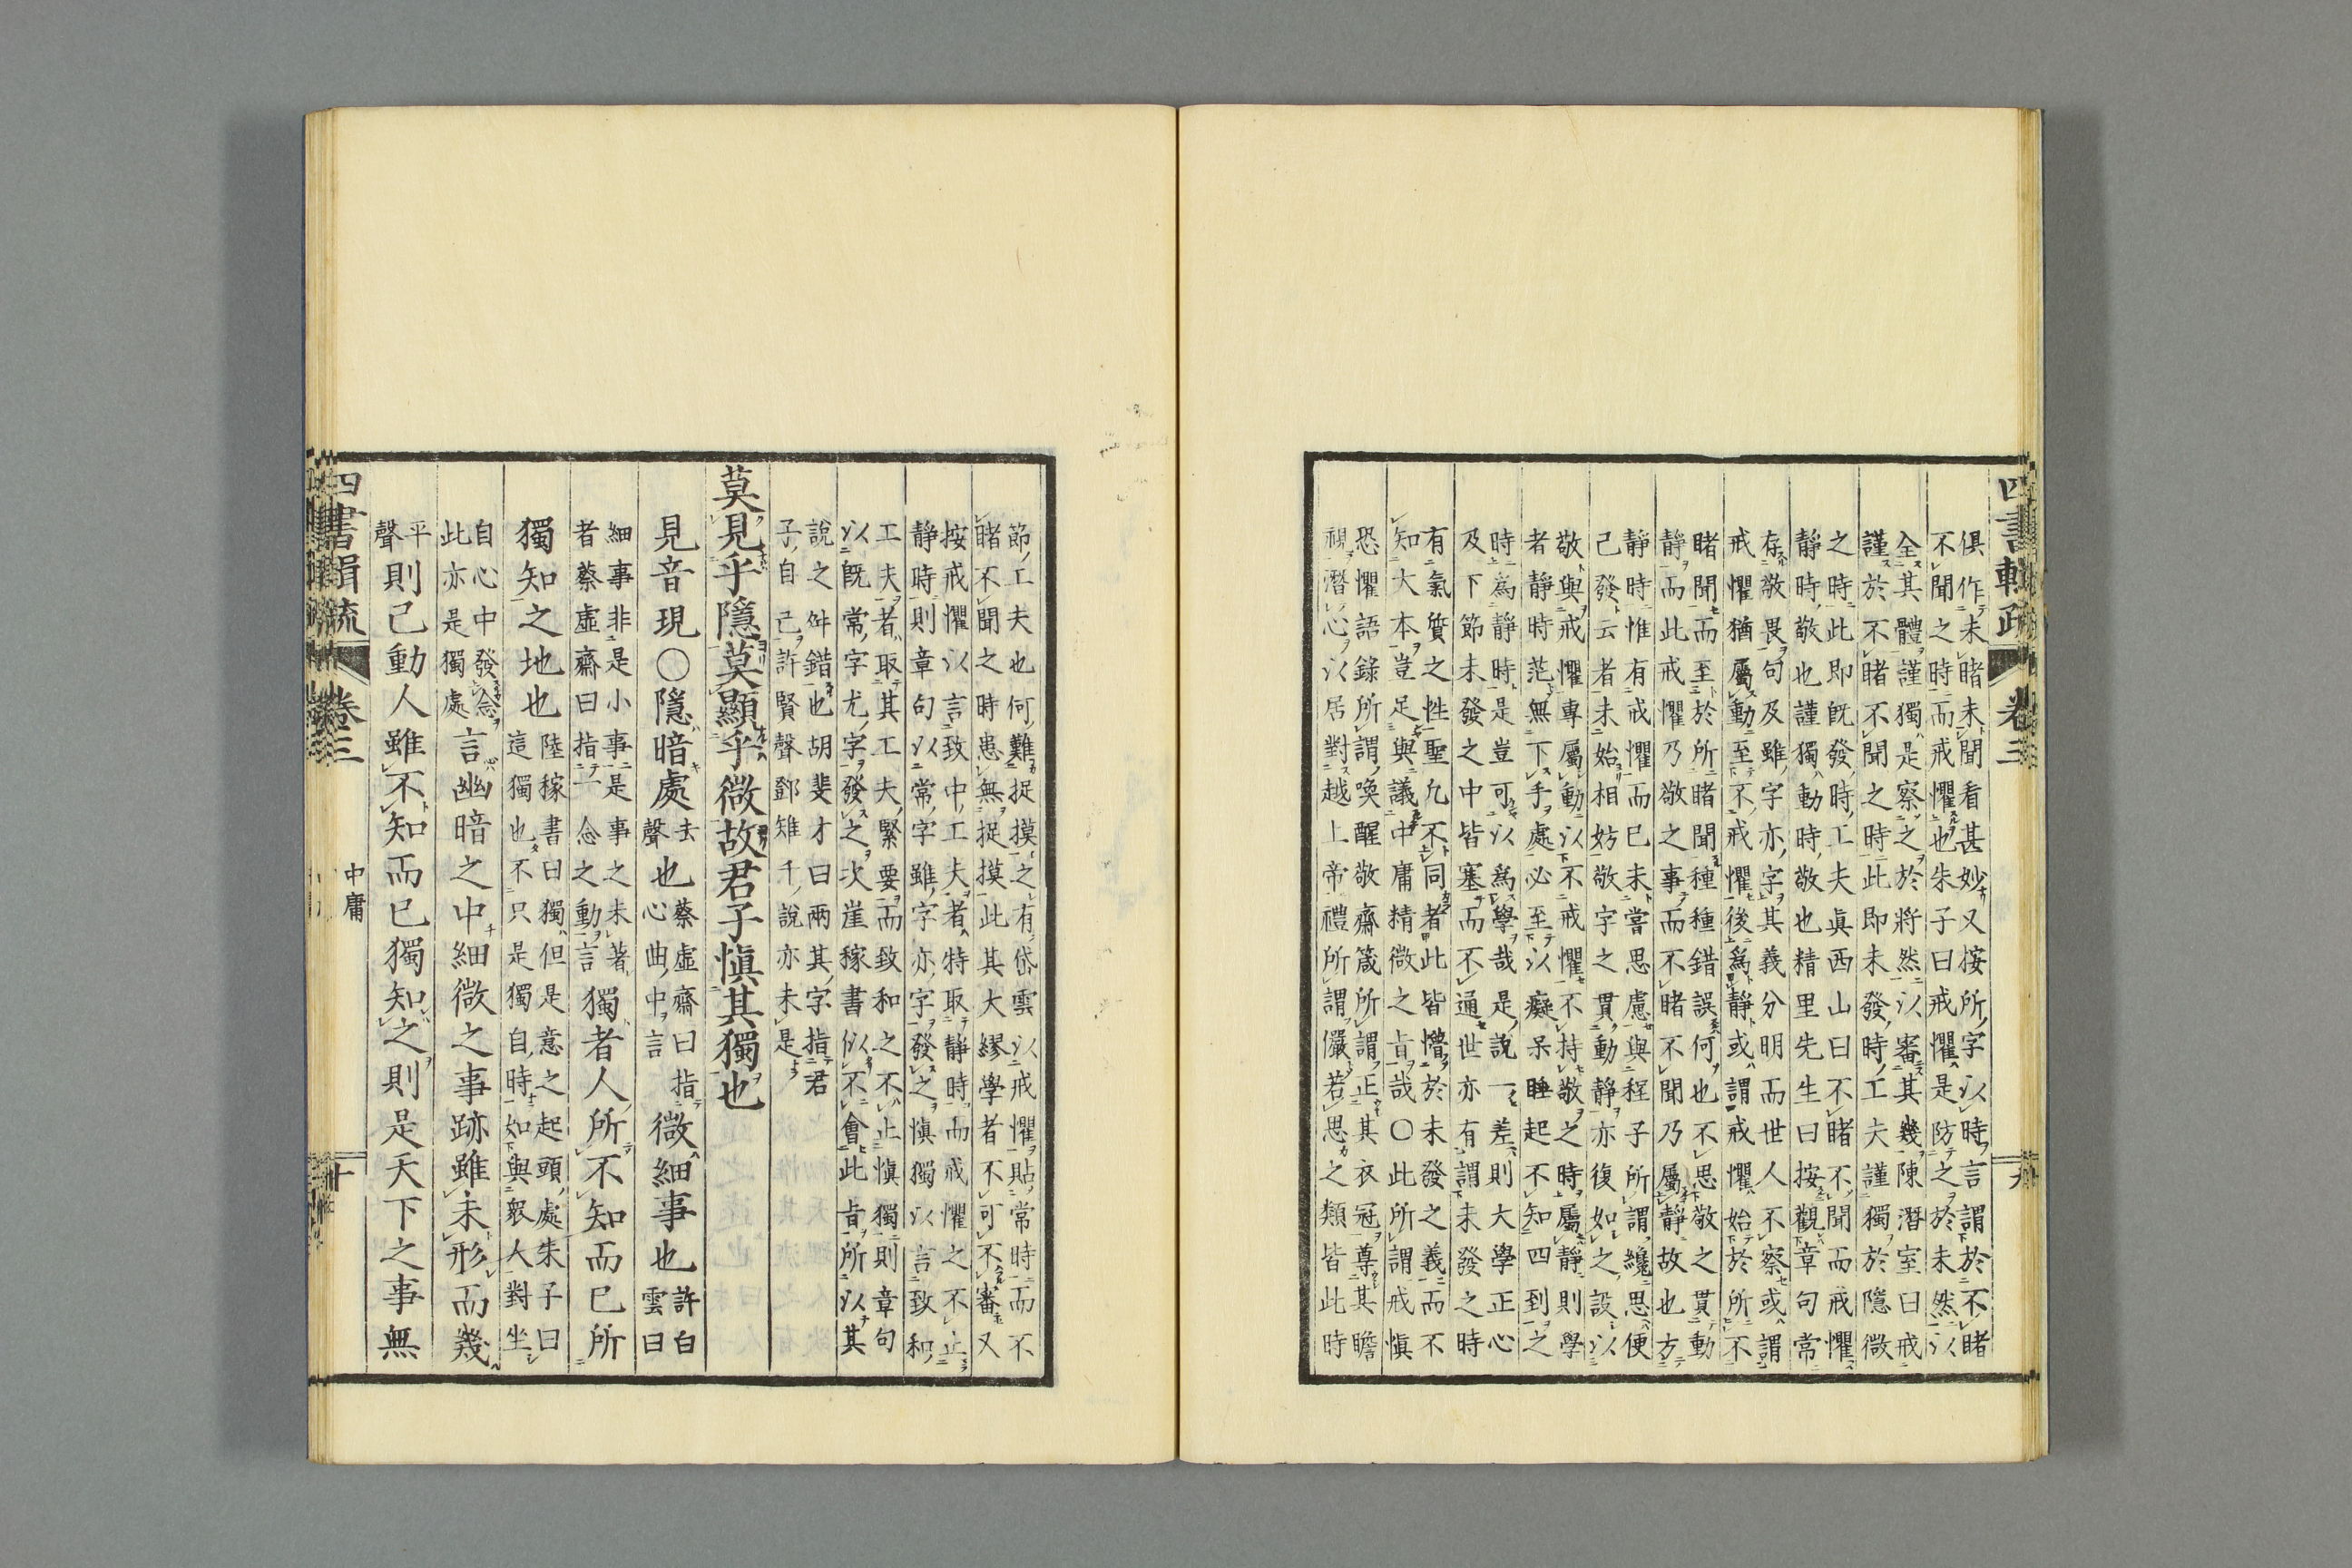 四書輯疏 卷三 九
俱作未睹未聞看甚妙又按所字以時言謂於不睹
不聞之時而戒懼也朱子曰戒懼是防之於未然以
全其體謹獨是察之於將然以審其幾陳潛室曰戒
謹於不睹不聞之時此即未發時工夫謹獨於隱微
之時此即既發時工夫眞西山曰不睹不聞而戒懼
靜時敬也謹獨動時敬也精里先生曰按觀章句常
存敬畏句及雖字亦字其義分明而世人不察或謂
戒懼猶屬動至不戒懼後爲靜或謂戒懼始於所不
睹聞而至於所睹聞種種錯誤何也不思敬之貫動
靜而此戒懼乃敬之事而不睹不聞乃屬靜故也方
靜時惟有戒懼而已未嘗思慮與程子所謂纔思便
已發云者未始相妨敬字之貫動靜亦復如之設以
敬與戒懼專屬動以不戒懼不持敬之時屬靜則學
者靜時茫無下手處必至以癡呆睡起不知四到之
時爲靜時是豈可以爲學哉是說一差則大學正心
及下節未發之中皆塞而不通世亦有謂未發之時
有氣質之性聖凡不同者此皆懵於未發之義而不
知大本豈足與議中庸精微之旨哉○此所謂戒愼
恐懼語錄所謂喚醒敬齋箴所謂正其衣冠尊其瞻
視潛心以居對越上帝禮所謂儼若思之類皆此時
節工夫也何難捉摸之有岱雲以戒懼貼常時而不
睹不聞之時患無捉摸此其大繆學者不可不審又
按戒懼以言致中工夫者特取靜時而戒懼之不止
靜時則章句以常字雖字亦字發之愼獨以言致和
工夫者取其工夫緊要而致和之不止愼獨則章句
以既常字尤字發之次崖稼書似不會此旨所以其
說之舛錯也胡斐才曰兩其字指君
子自己許賢聲鄧雉千說亦未是
莫見乎隱莫顯乎微故君子愼其獨也
見音現○隱暗處去聲也心曲中言蔡虛齋曰指微細事也許白雲曰
細事非是小事是事之未著
者蔡虛齋曰指一念之動言獨者人所不知而已所
獨知之地也陸稼書曰獨但是意之起頭處朱子曰
這獨也不只是獨自時如與衆人對坐
自心中發念
此亦是獨處言幽暗之中細微之事跡雖未形而幾
平聲則已動人雖不知而已獨知之則是天下之事無
四書輯疏 卷三 中庸 十